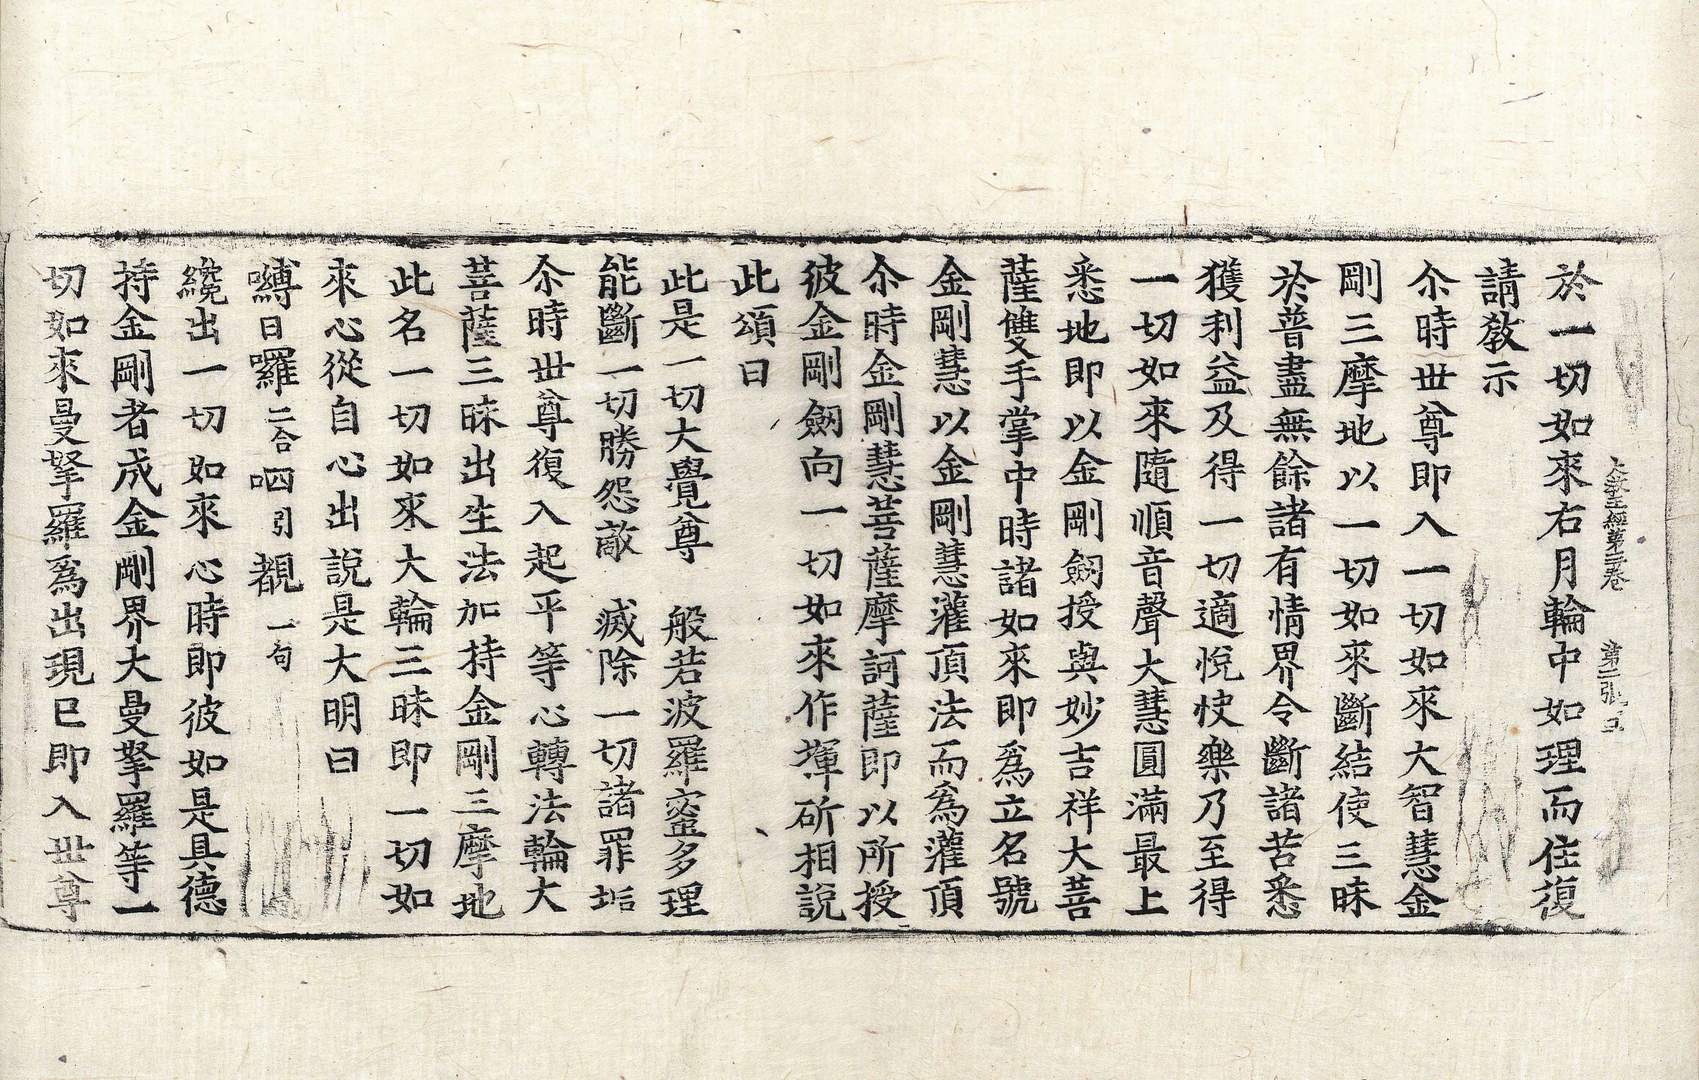 大教王經第二卷　第二張
於一切如來右月輪中如理而住復
請教示
尒時世尊即入一切如來大智慧金
剛三摩地以一切如來斷結使三昧
於普盡無餘諸有情界令斷諸苦悉
獲利益及得一切適悅快樂乃至得
一切如來隨順音聲大慧圓滿最上
悉地即以金剛劒授與妙吉祥大菩
薩雙手掌中時諸如來即爲立名號
金剛慧以金剛慧灌頂法而爲灌頂
尒時金剛慧菩薩摩訶薩即以所授
彼金剛劒向一切如來作揮斫相說
此頌曰
此是一切大覺尊　般若波羅蜜多理
能斷一切勝怨敵　滅除一切諸罪垢
尒時世尊復入起平等心轉法輪大
菩薩三昧出生法加持金剛三摩地
此名一切如來大輪三昧即一切如
來心從自心出說是大明曰
嚩日囉二合呬引覩一句
纔出一切如來心時即彼如是具德
持金剛者成金剛界大曼拏羅等一
切如來曼拏羅爲出現已即入世尊